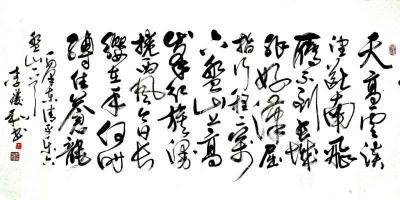 天高雲淡
望斷南飛
雁不到長城
非好漢屈
指行程二萬
六盤山上高
峰紅旗漫
捲西風今日長
纓在手何時
縛住蒼龍
毛澤東清平乐六
盤山
李
书